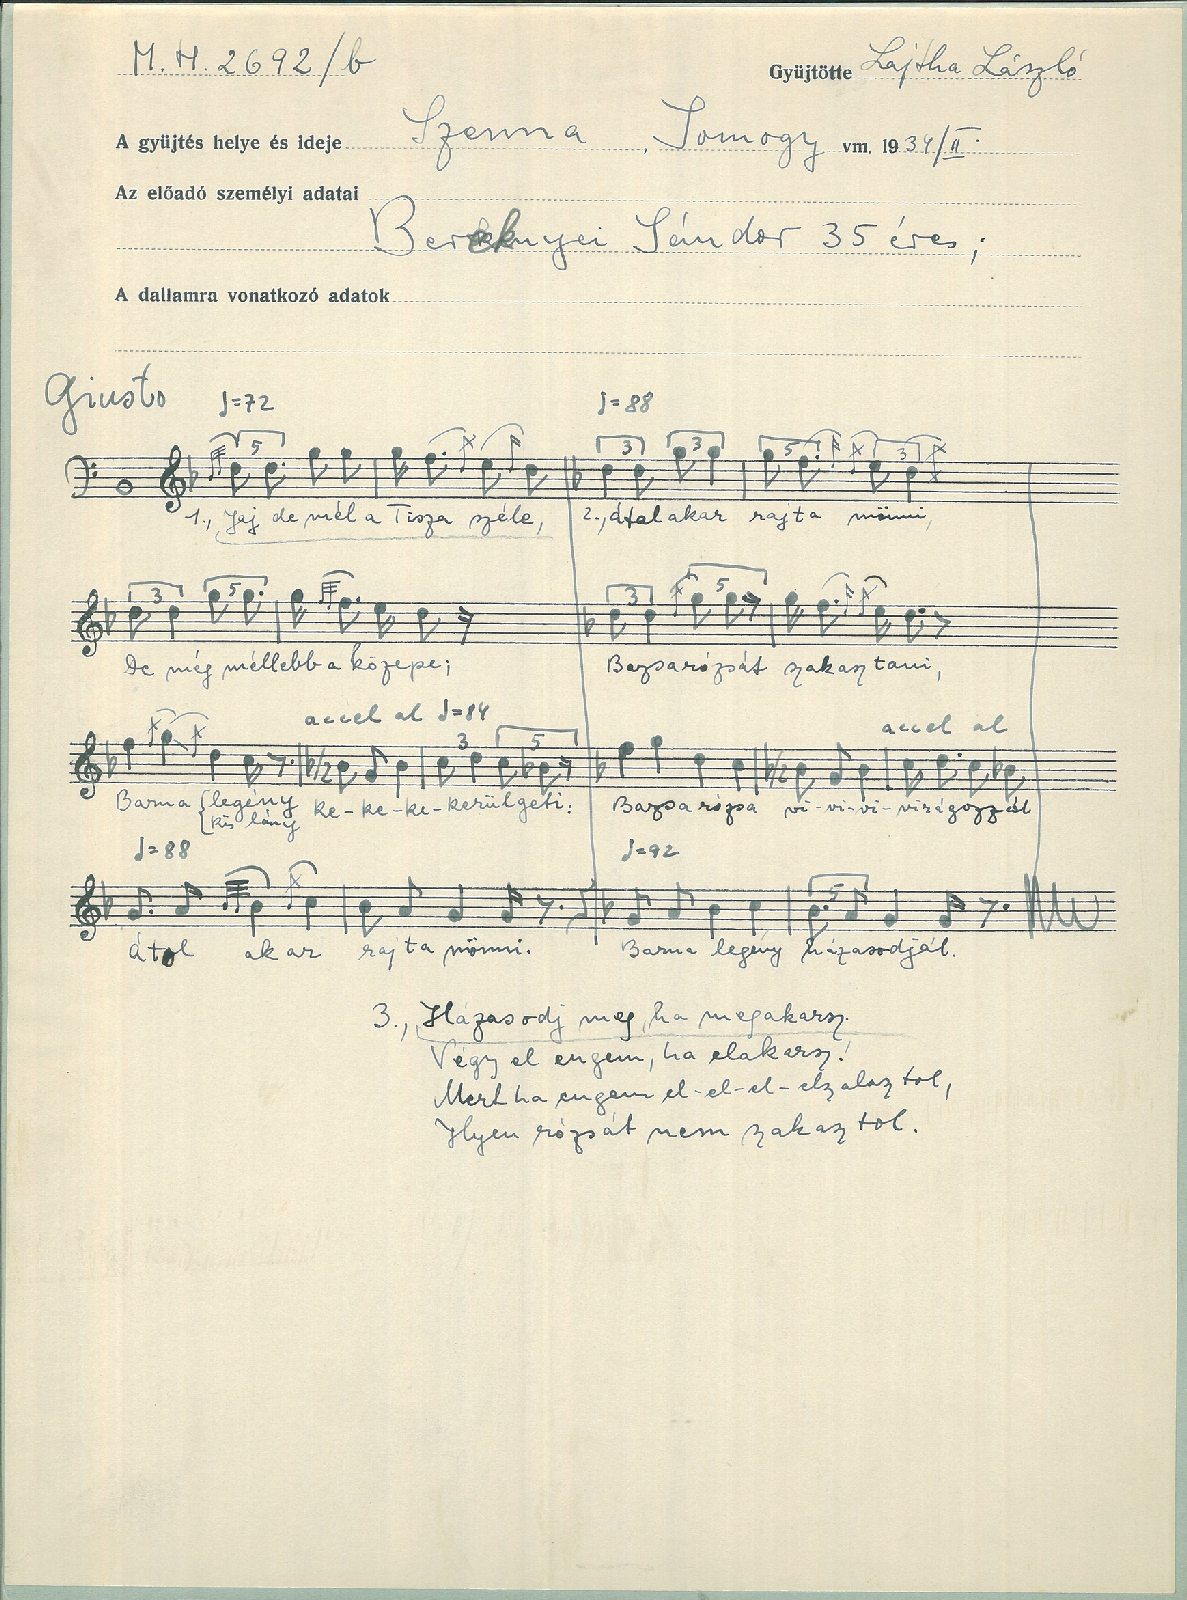 M. H. 2692/b
Gyüjtötte Lajtha László
A gyüjtés helye és ideje Szenna, Somogy vm. 1934/II.
Az előadó személyi adatai
Berknyei Sándor 35 éves;
A dallamra vonatkozó adatok
Giusto ♩=72 ♩=88
5 3 3 5 3
1., Jaj de mél a Tisza széle, 2., átal akar rajta mönni,
3 5 3 5
De még méllebb a közepe; Bazsarózsát szakasztani,
accel al ♩=84 accel al
3 5
Barna {legény ke-ke-ke-kerülgeti: Bazsarózsa vi-vi-vi-virágozzál
{kis lány
♩=88 ♩=92
5
Átol akar rajta mönni. Barna legény házasodjál.
3., Házasodj meg, ha megakarsz.
Végy el engem, ha elakarsz!
Mert ha engem el-el-el-elzalasztol,
Ilyen rózsát nem szakasztol.